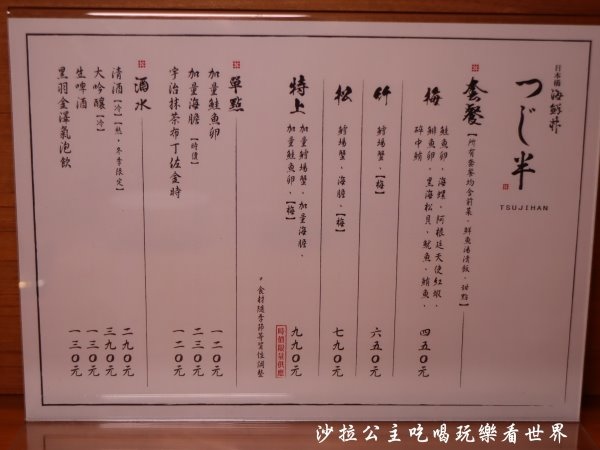 日本橋 海鮮丼
つじ半
TSUJIHAN
套餐【所有套餐均含前菜、鮮魚湯清飲、甜點】
梅
鮭魚卵、海螺、阿根廷天使紅蝦、
鯡魚卵、黑海松貝、魷魚、鮪魚、
碎中鮪
四五0元
竹
鱈場蟹、【梅】
六五0元
松
鱈場蟹、海膽、【梅】
七九0元
特上
加量鱈場蟹、加量海膽、
加量鮭魚卵、【梅】
九九0元
時價限量供應
*食材隨季節等質性調整
單點
加量鮭魚卵
一二0元
加量海膽【時價】
二三0元
宇治抹茶布丁佐金時
一二0元
酒水
清酒【冷】【熱,冬季限定】
二九0元
大吟釀【冷】
三九0元
生啤酒
一三0元
黑羽金澤氣泡飲
一三0元
沙拉公主吃喝玩樂看世界